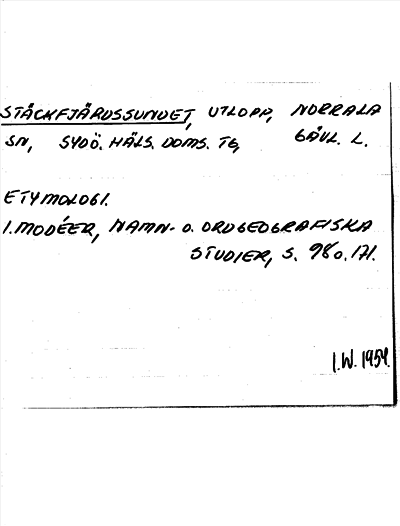 STÅCKFJÄRDSSUNDET, UTLOPP, NORRALA
SN, SYDÖ. HÄLS. DOMS. TG, GÄVL. L.
ETYMOLOGI.
I. MODÉER, NAMN- O. ORDGEOGRAFISKA
STUDIER, S. 98 o. 171.
I.W. 1954.